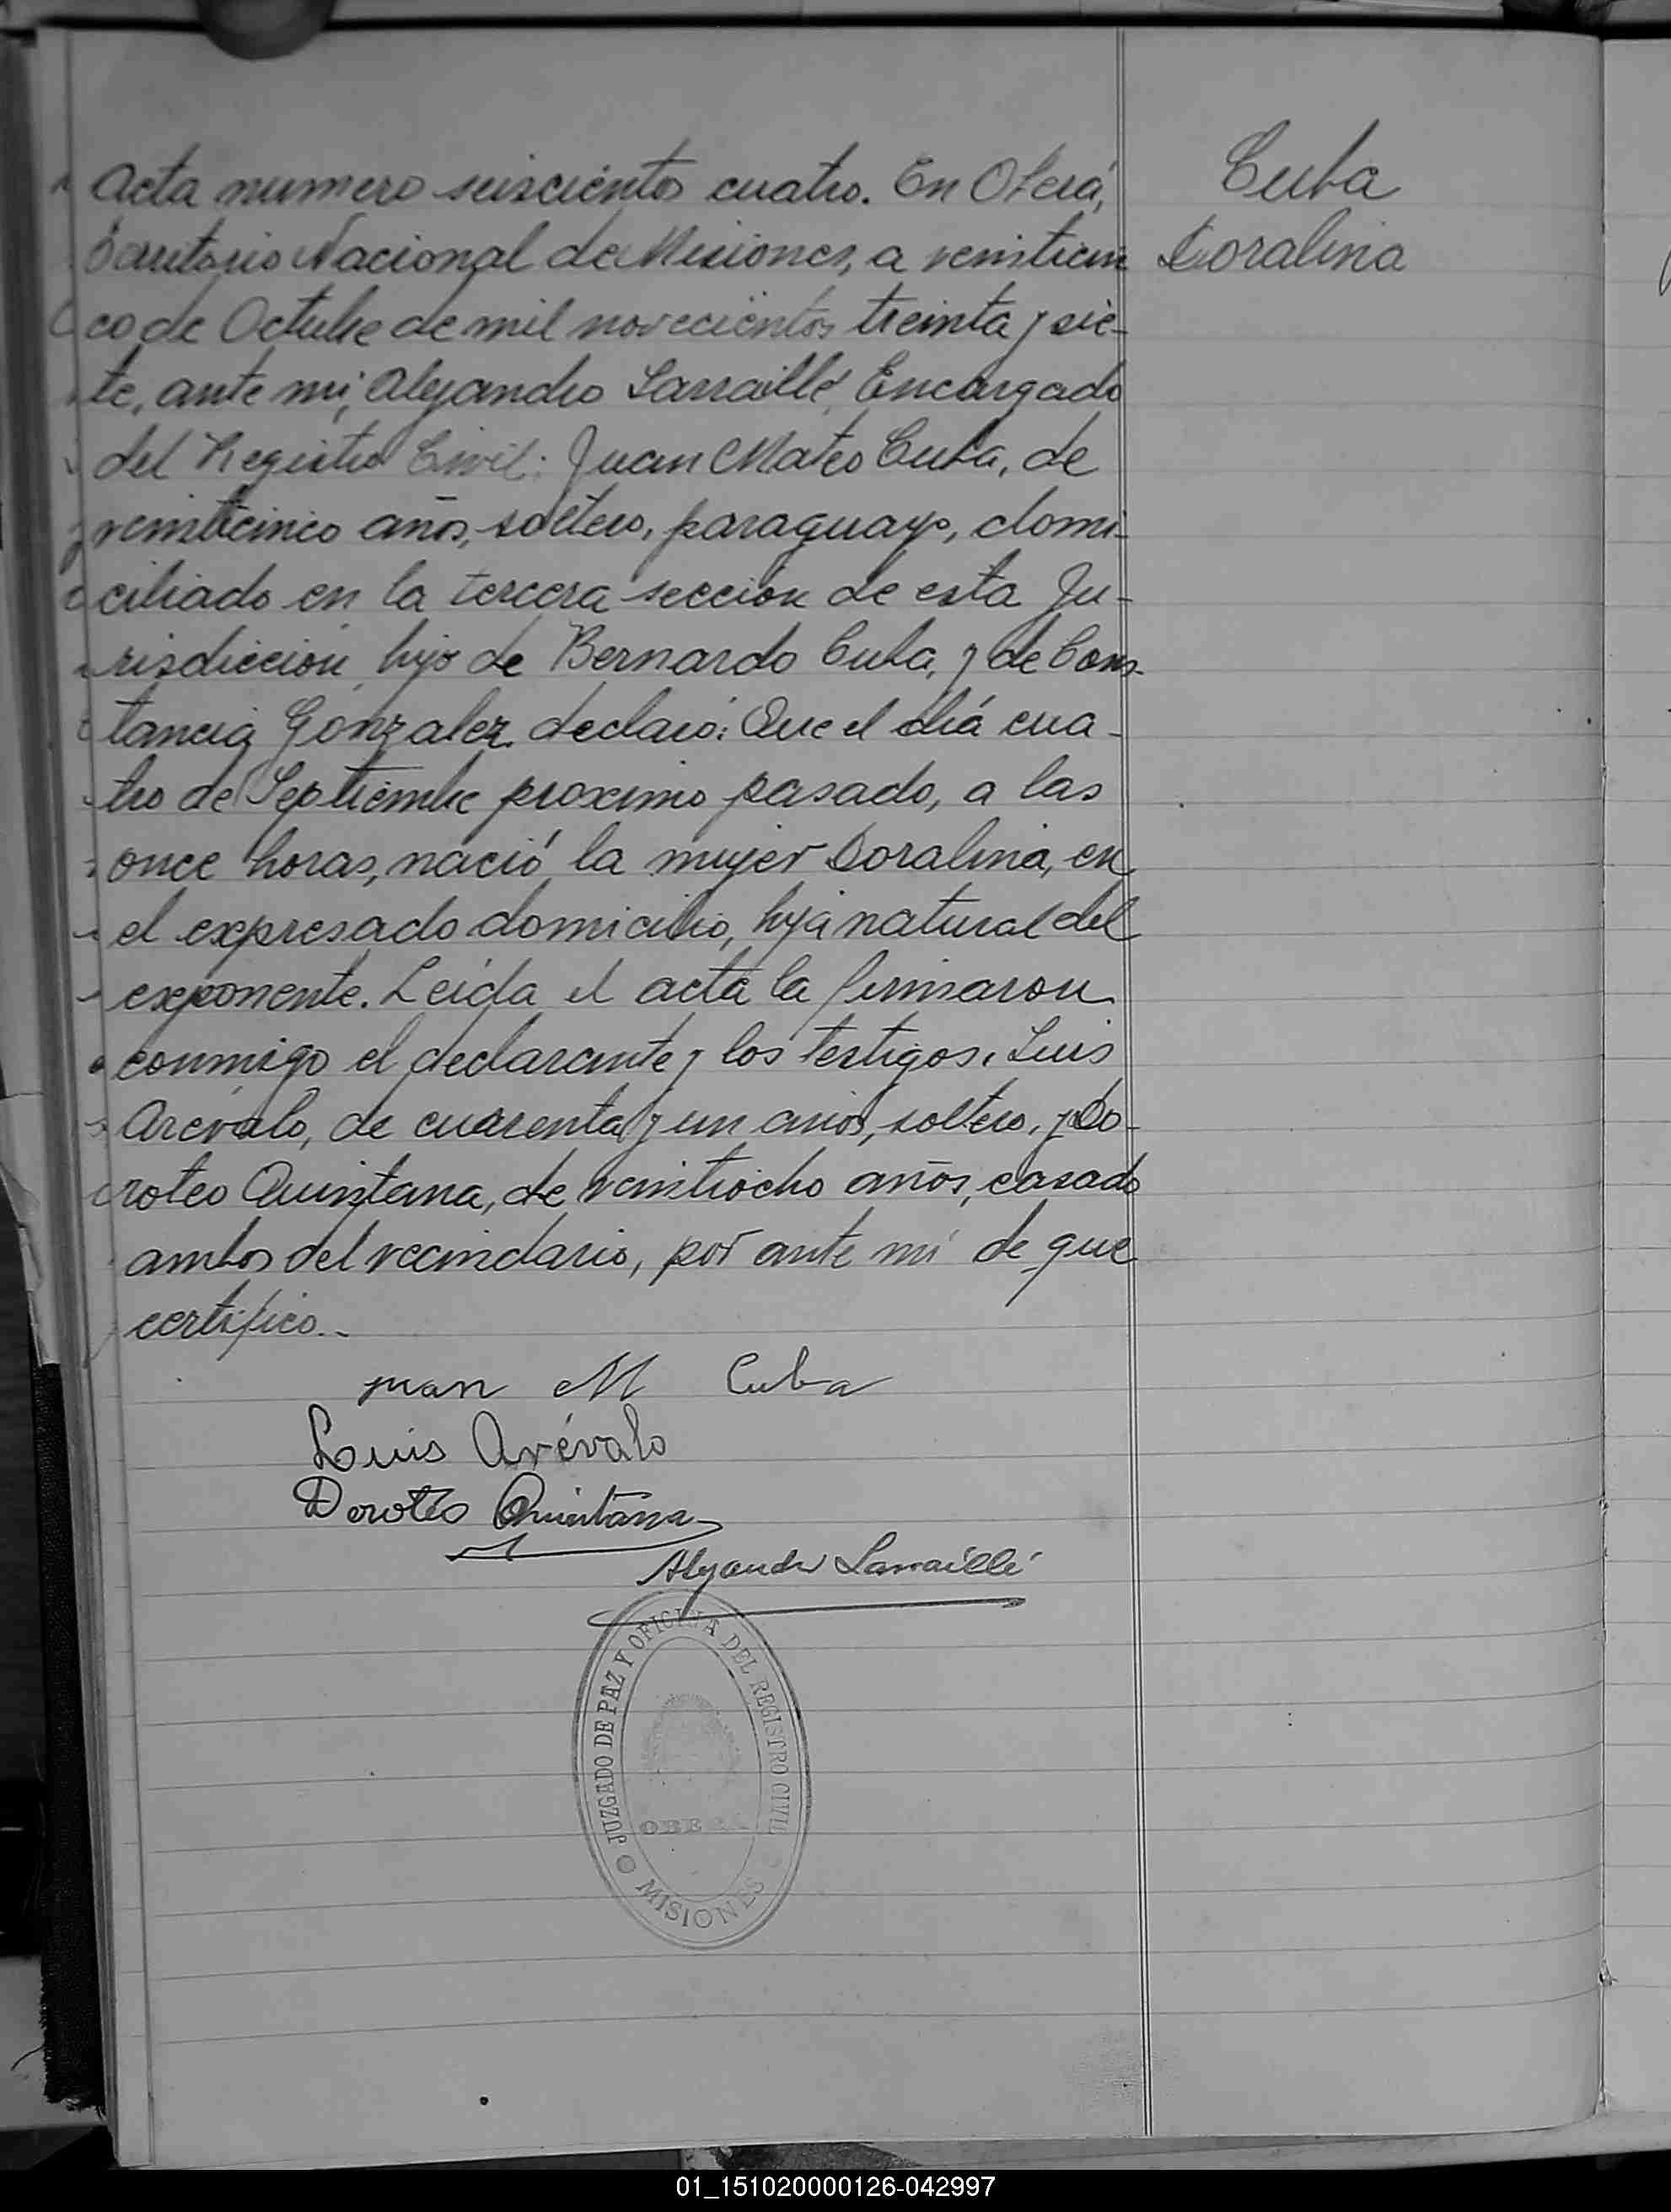 Cuba
Doralina
Acta numero seiscientos cuatro. En Oberá,
Territorio Nacional de Misiones, a veinticin
co de Octubre de mil novecientos treinta y sie-
te, ante mi, Alejandro Larraillé, Encargado
del Registro Civil: Juan Mateo Cuba, de
veinticinco años, soltero, paraguayo, domi-
ciliado en la tercera sección de esta Ju-
risdicción, hijo de Bernardo Cuba, y de Cons-
tancia Gonzalez, declaró: Que el día cua-
tro de Septiembre proximo pasado, a las
once horas, nació la mujer Doralina, en
el expresado domicilio, hija natural del
exponente. Leída el acta la firmaron
conmigo el declarante y los testigos, Luis
Arévalo, de cuarenta y un años, soltero, y Do-
roteo Quintana, de veintiocho años, casado
ambos del vecindario, por ante mí de que
certifico.-
juan M Cuba
Luis Arévalo
Doroteo Quintana
Alejandro Larraillé
JUZGADO DE PAZ Y OFICINA DEL REGISTRO CIVIL
OBERA
MISIONES
01_151020000126-042997